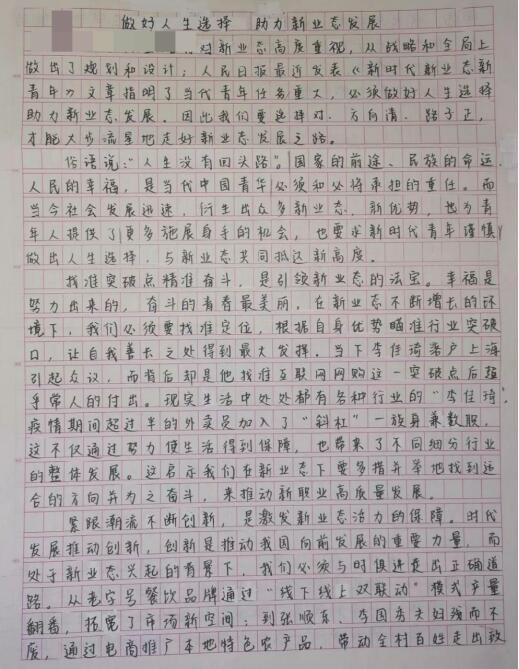 做好人生选择 助力新业态发展
对新业态高度重视，从战略和全局上
做出了规划和设计；人民日报最近发表《新时代新业态新
青年》文章指明了当代青年任务重大，必须做好人生选择
助力新业态发展。因此我们要选择对、方向清、路子正，
才能大步流星地走好新业态发展之路。
俗语说："人生没有回头路"。国家的前途、民族的命运、
人民的幸福，是当代中国青华必须和必将承担的重任。而
当今社会发展迅速，衍生出众多新业态、新优势，也为青
年人提供了更多施展身手的机会，也要求新时代青年谨慎
做出人生选择，与新业态共同抵达新高度。
找准突破点精准奋斗，是引领新业态的法宝。幸福是
努力出来的，奋斗的青春最美丽，在新业态不断增长的环
境下，我们必须要找准定位，根据自身优势瞄准行业突破
口，让自我善长之处得到最大发挥。当下李佳琦落户上海
引起众议，而背后却是他找准互联网网购这一突破点后超
乎常人的付出。现实生活中处处都有各种行业的"李佳琦"，
疫情期间超过半的外卖员加入了"斜杠"一族身兼数职，
这不仅通过努力使生活得到保障，也带来了不同细分行业
的整体发展。这启示我们在新业态下要多措并举地找到适
合的方向并为之奋斗，来推动新职业高质量发展。
紧跟潮流不断创新，是激发新业态活力的保障。时代
发展推动创新，创新是推动我国向前发展的重要力量，而
处于新业态兴起的背景下，我们必须与时俱进走出正确道
路。从老字号餐饮品牌通过"线下线上双联动"模式产量
翻番，拓宽了市场新空间；到张顺东、李国秀夫妇残而不
废，通过电商推广本地特色农产品，带动全村百姓走出致